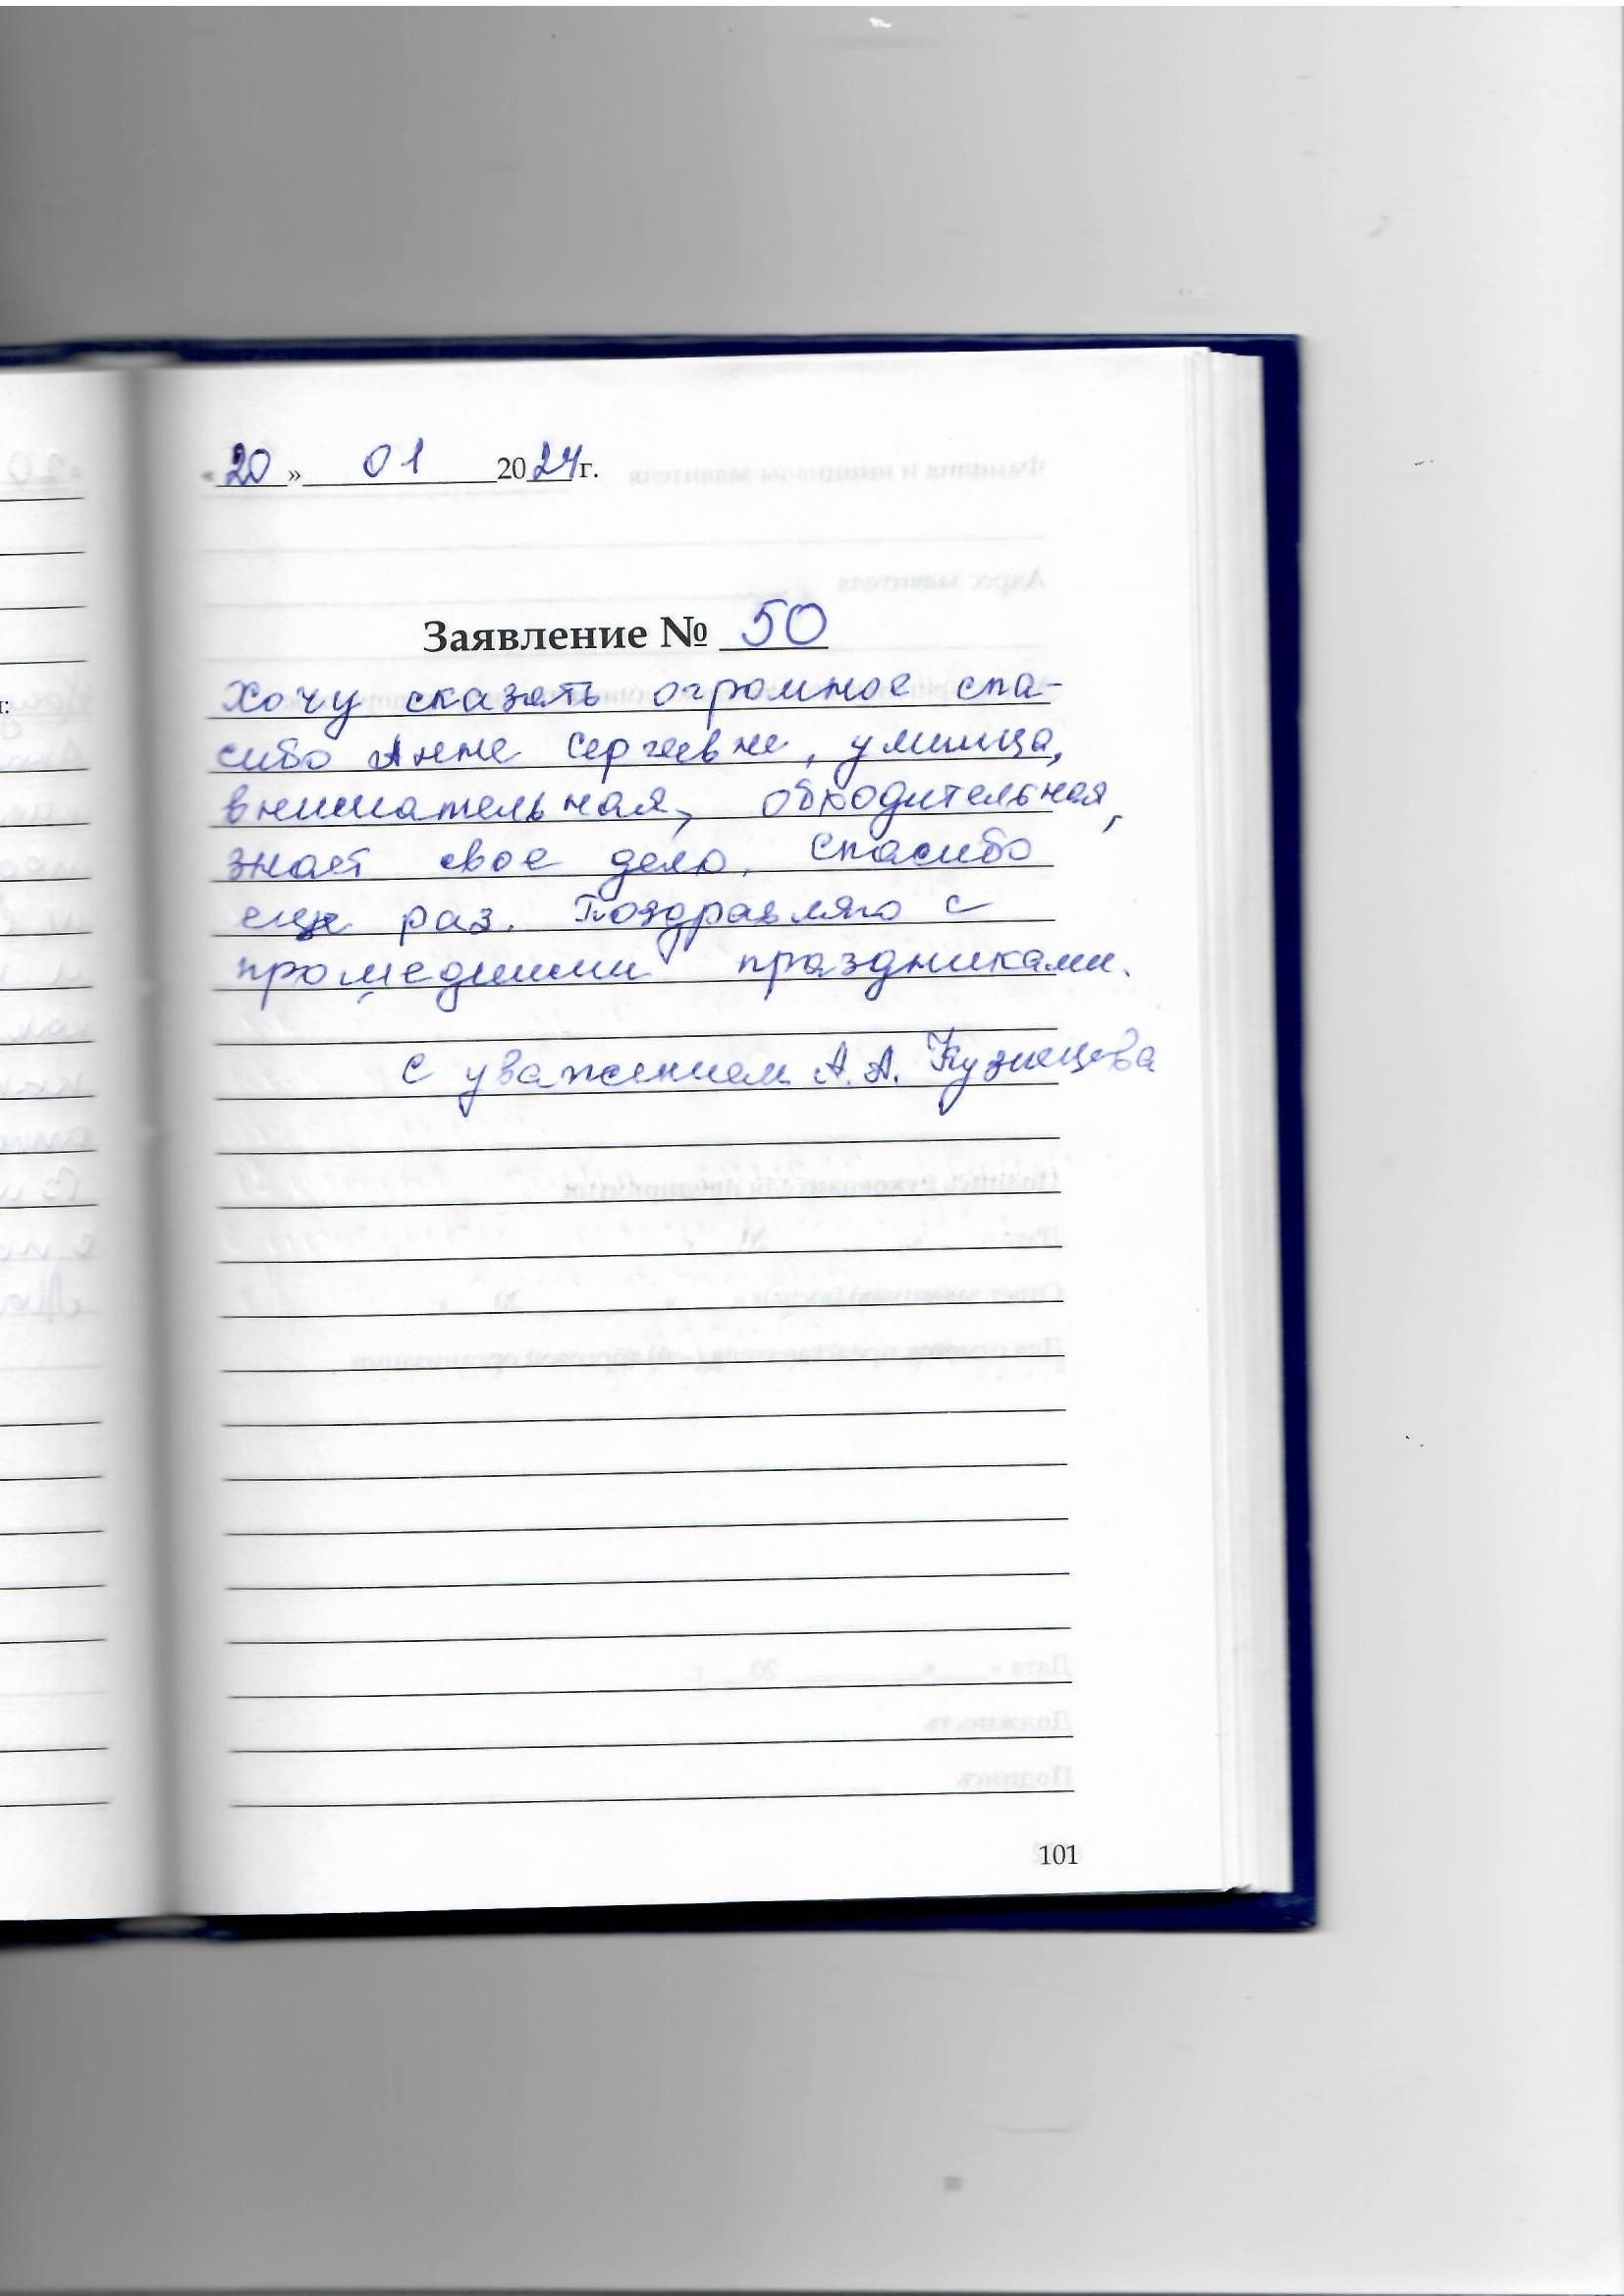 «20» 01 2024г.
Заявление № 50
Хочу сказать огромное спа-
сибо Анне Сергеевне, умница,
внимательная, обходительная,
знает свое дело. Спасибо
еще раз. Поздравляю с
прошедшими праздниками.
С уважением А.А. Кузнецова
101